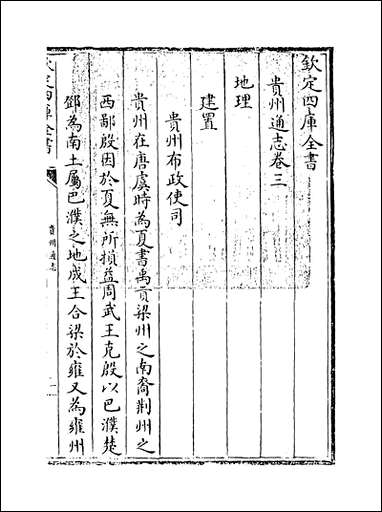 欽定四庫全書
貴州通志卷三
地理
建置
貴州布政使司
貴州在唐虞時為夏書禹貢梁州之南裔荆州之
西鄙殷因於夏無所損益周武王克殷以巴濮楚
鄧為南土屬巴濮之地成王合梁於雍又為雍州
欽定四庫全書
貴州通志